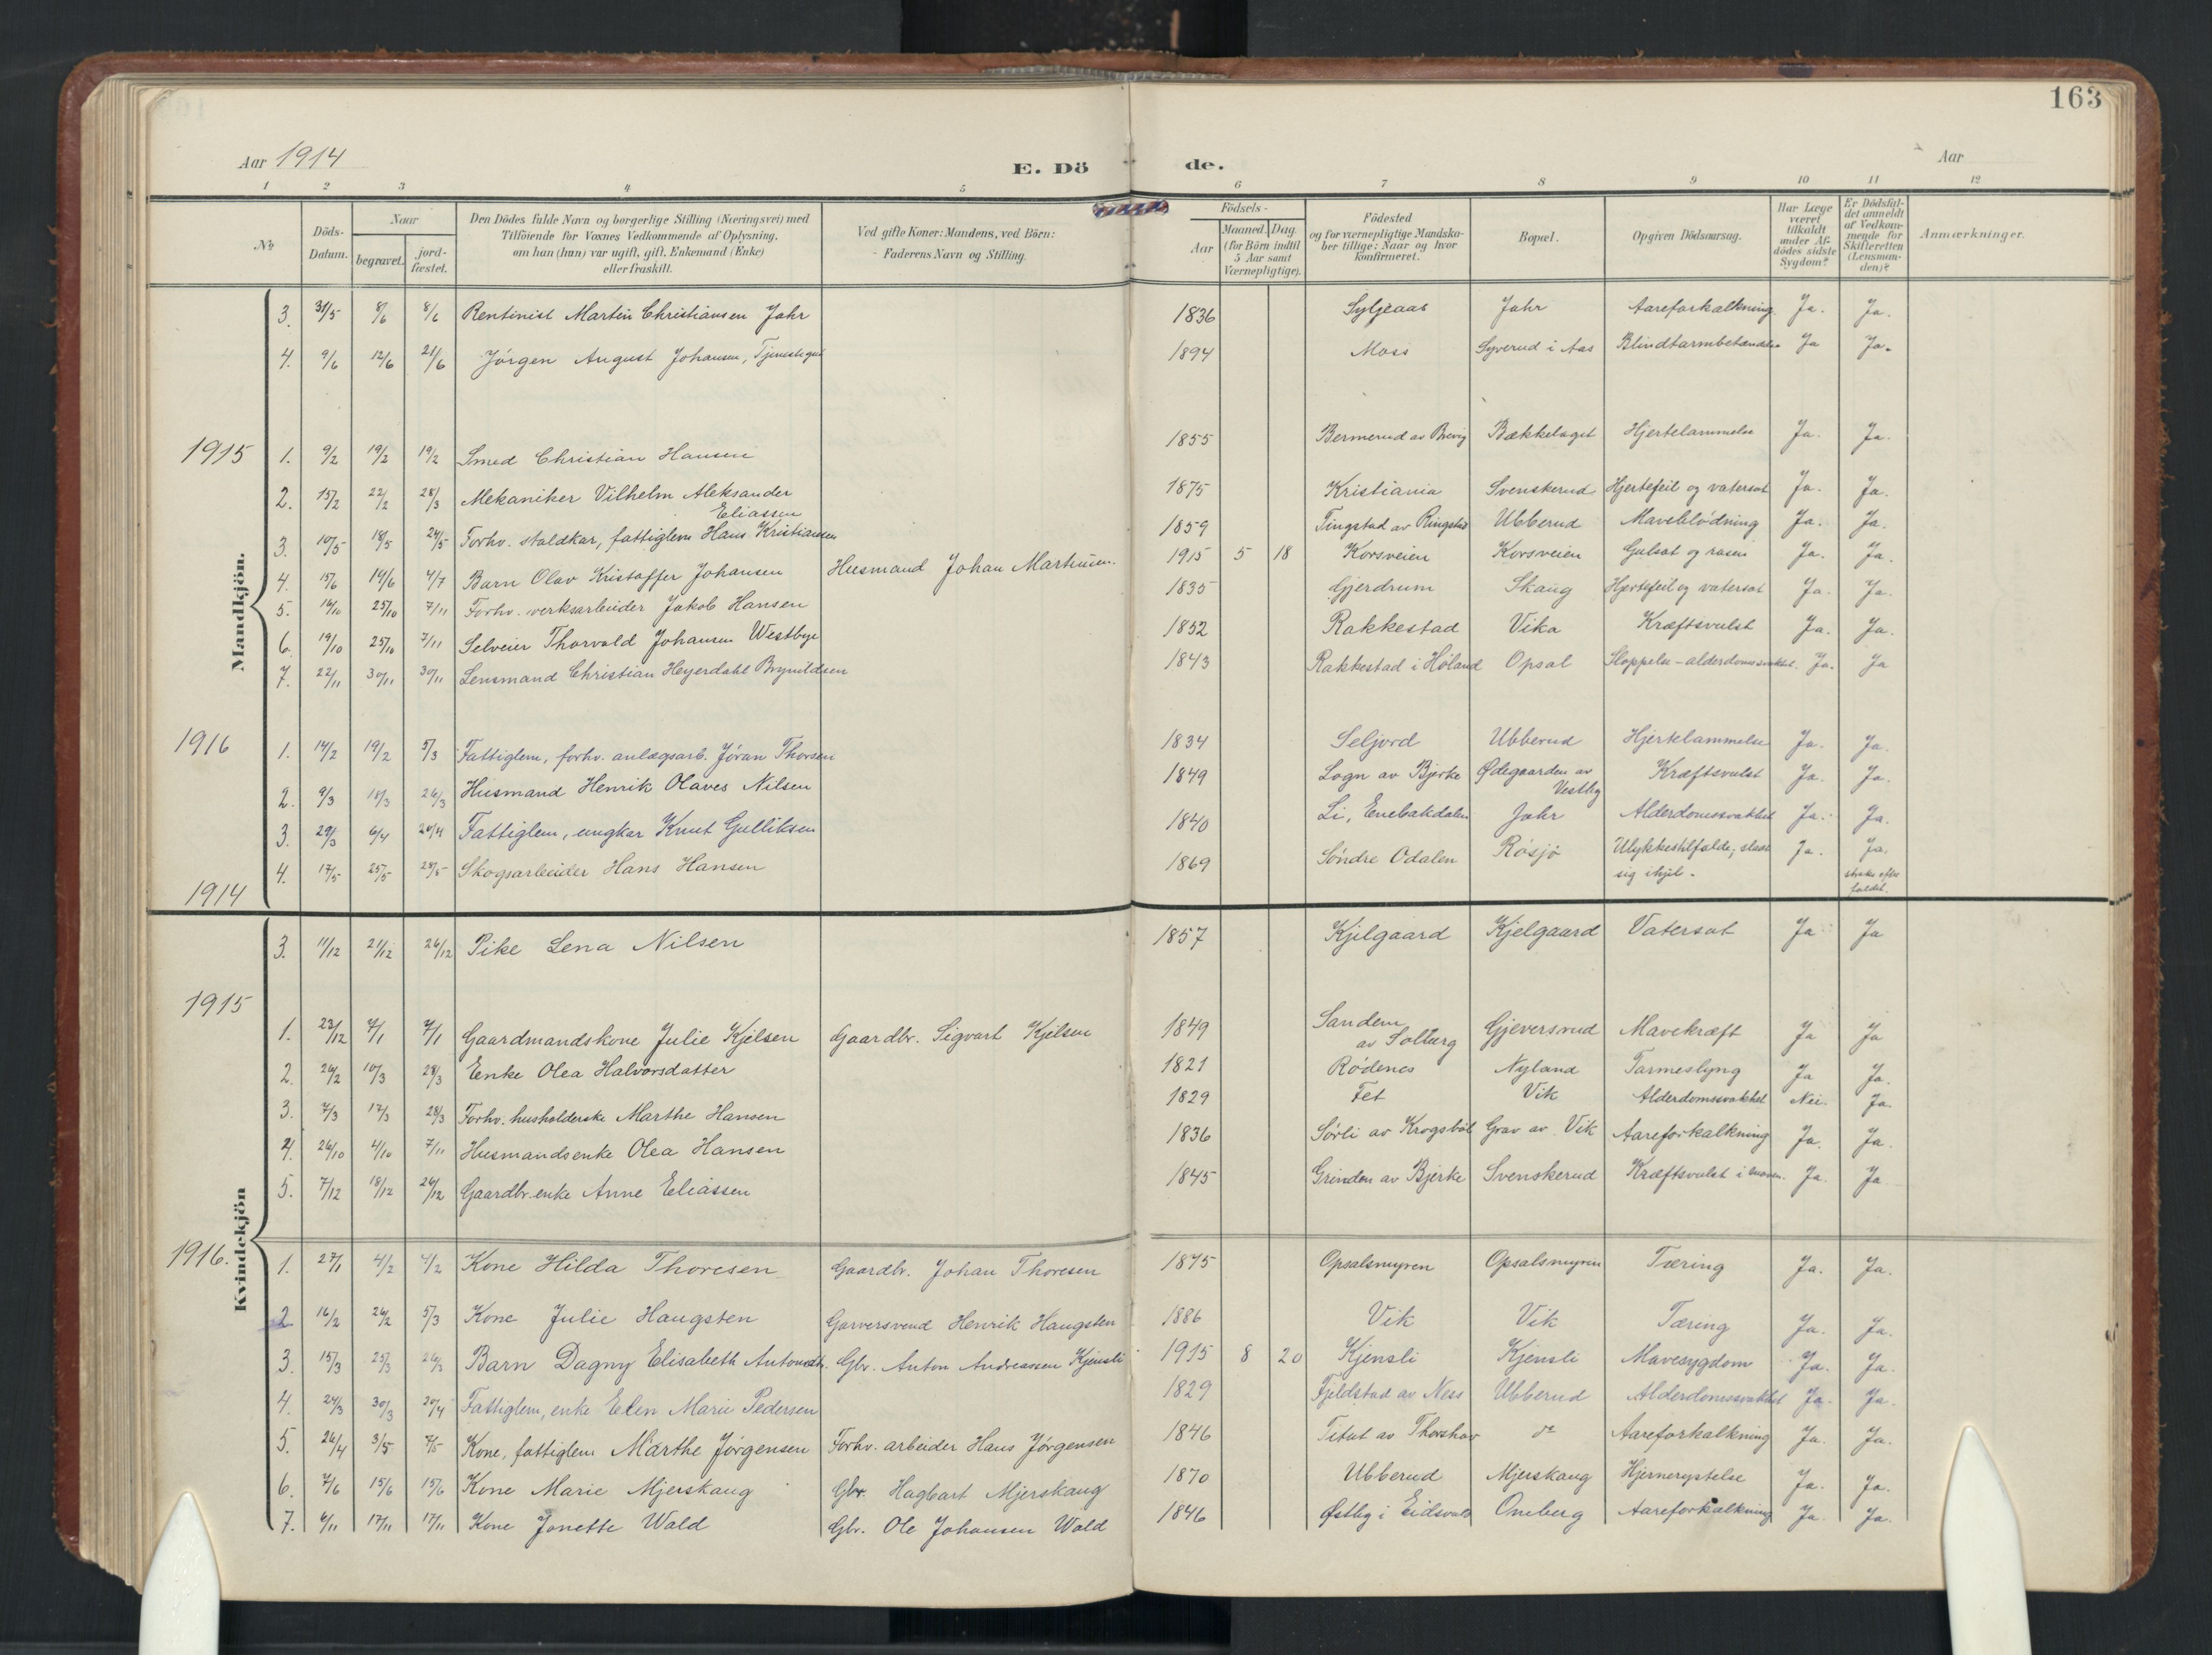 163
Aar 1914 E. Dö de. Aar
1 2 3 4 5 6 7 8 9 10 11 12
№ Döds-Datum. Naar begravet. jord-fæstet. Den Dödes fulde Navn og borgerlige Stilling (Næringsvei) med Tilföiende for Voxnes Vedkommende af Oplysning, om han (hun) var ugift, gift, Enkemand (Enke) eller fraskilt. Ved gifte Koner: Mandens, ved Börn: Faderens Navn og Stilling. Födsels- Aar Maaned. Dag. (for Börn indtil 5 Aar samt Værnepligtige). Födested og for værnepligtige Mandskaber tillige: Naar og hvor konfirmeret. Bopæl. Opgiven Dödsaarsag. Har Læge været tilkaldt under Afdödes sidste Sygdom? Er Dödsfaldet anmeldt af Vedkommende for Skifteretten (Lensmanden)? Anmærkninger.
Mandkjön.
3. 31/5 8/6 8/6 Rentenist Martin Christiansen Jahr 1836 Syljeaas Jahr Aareforkalkning Ja. Ja.
4. 9/6 12/6 21/6 Jörgen August Johansen, Tjenestegut 1894 Moss Syverud i Aas Blindtarmbetændelse Ja Ja.
1915 1. 9/2 19/2 19/2 Smed Christian Hansen 1855 Bermerud av Brevig Bækkelaget Hjertelammelse Ja. Ja.
2. 15/2 22/2 28/3 Mekaniker Vilhelm Aleksander Eliassen 1875 Kristiania Svenskerud Hjertefeil og vatersot Ja. Ja.
3. 10/5 18/5 24/5 Forhv. staldkar, fattiglem Hans Kristiansen 1859 Tingstad av Ringstad Ubberud Maveblödning Ja. Ja.
4. 15/6 19/6 4/7 Barn Olav Kristoffer Johansen Husmand Johan Martinsen. 1915 5 18 Korsveien Korsveien Gulsot og rosen Ja. Ja.
5. 16/10 25/10 7/11 Forhv. verksarbeider Jakob Hansen 1835 Gjerdrum Skaug Hjertefeil og vatersot Ja. Ja.
6. 19/10 25/10 7/11 Selveier Thorvald Johansen Westbye 1852 Rakkestad Vika Kræftsvulst Ja. Ja.
7. 22/11 30/11 30/11 Lensmand Christian Heyerdahl Brynildsen 1843 Rakkestad i Höland Opsal Sloppelse - alderdomssvakhet. Ja. Ja
1916 1. 14/2 19/2 5/3 Fattiglem, forhv. anlægsarb. Jöran Thorsen 1834 Seljord Ubberud Hjertelammelse Ja. Ja.
2. 9/3 18/3 26/3 Husmand Henrik Olaves Nilsen 1849 Logn av Bjerke Ødegaarden av Vestby Kræftsvulst Ja. Ja.
3. 29/3 6/4 20/4 Fattiglem, ungkar Knut Gulliksen 1840 Li, Enebakdalen Jahr Alderdomssvakhet Ja. Ja.
4. 17/5 25/5 28/5 Skogsarbeider Hans Hansen 1869 Söndre Odalen Rösjö Ulykkestilfælde; sloss sig ihjel. Ja. Ja. straks efter faldet.
Kvindekjön
1914 3. 11/12 21/12 26/12 Pike Lena Nilsen 1857 Kjelgaard Kjelgaard Vatersot Ja Ja
1915 1. 23/12 7/1 7/1 Gaardmandskone Julie Kjelsen Gaardbr. Sigvart Kjelsen 1849 Sandem av Solberg Gjeversrud Mavekræft Ja Ja
2. 26/2 10/3 28/3 Enke Olea Halvorsdatter 1821 Rödenes Nyland Tarmeslyng Ja Ja.
3. 7/3 17/3 28/3 Forhv. husholderske Marthe Hansen 1829 Fet Vik Alderdomssvakhet Nei. Ja.
4. 26/10 4/10 7/11 Husmandsenke Olea Hansen 1836 Sörli av Krogsböl Grav av Vik Aareforkalkning Ja. Ja.
5. 7/12 18/12 26/12 Gaardbr. enke Anne Eliassen 1845 Grinden av Bjerke Svenskerud Kræftsvulst i maven. Ja. Ja
1916. 1. 27/1 4/2 4/2 Kone Hilda Thoresen Gaardbr. Johan Thoresen 1875 Opsalsmyren Opsalsmyren Tæring Ja. Ja.
2 16/2 26/2 5/3 Kone Julie Haugsten Garversvend Henrik Haugsten 1886 Vik Vik Tæring Ja. Ja.
3. 15/3 25/3 26/3 Barn Dagny Elisabeth Antonsdtr. Gbr. Anton Andreassen Kjensli 1915 8 20 Kjensli Kjensli Mavesygdom Ja. Ja.
4. 24/3 30/3 20/4 Fattiglem, enke Elen Marie Pedersen 1829 Fjeldstad av Ness Ubberud Alderdomssvakhet Ja. Ja.
5. 26/4 3/5 7/5 Kone, fattiglem Marthe Jörgensen Forhv. arbeider Hans Jörgensen 1846 Titut av Thorshov do Aareforkalkning Ja. Ja.
6. 7/6 15/6 15/6 Kone Marie Mjerskaug Gbr. Hagbart Mjerskaug 1870 Ubberud Mjerskaug Hjernerystelse Ja. Ja.
7. 6/11 17/11 17/11 Kone Jonette Wald Gbr. Ole Johansen Wald 1846 Østby i Eidsvold Oneberg Aareforkalkning Ja. Ja.